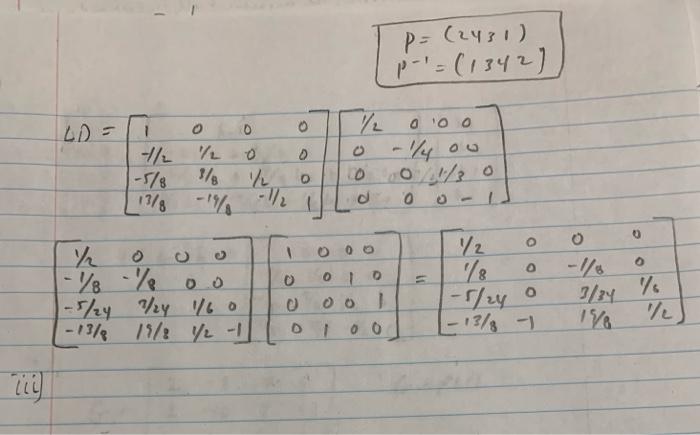 P = (2431)
P⁻¹ = (1342)
LD = [1 0 0 0] [1/2 0 0 0]
[-1/2 1/2 0 0] [0 -1/4 0 0]
[-5/8 3/8 1/2 0] [0 0 -1/3 0]
[13/8 -19/8 -1/2 1] [0 0 0 -1]
[1/2 0 0 0] [1 0 0 0] = [1/2 0 0 0]
[-1/8 -1/8 0 0] [0 0 1 0] [1/8 0 -1/8 0]
[-5/24 3/24 1/6 0] [0 0 0 1] [-5/24 0 3/34 1/6]
[-13/8 19/8 1/2 -1] [0 1 0 0] [-13/8 -1 19/8 1/2]
iii)